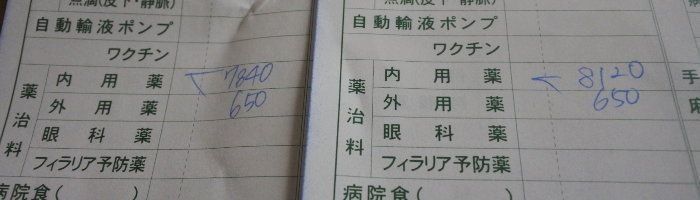 点滴(皮下・静脈)
自動輸液ポンプ
ワクチン
薬治料
内用薬 7840
外用薬 650
眼科薬
フィラリア予防薬
病院食(
点滴(皮下・静脈)
自動輸液ポンプ
ワクチン
薬治料
内用薬 8120
外用薬 650
眼科薬
フィラリア予防薬
病院食( )
手